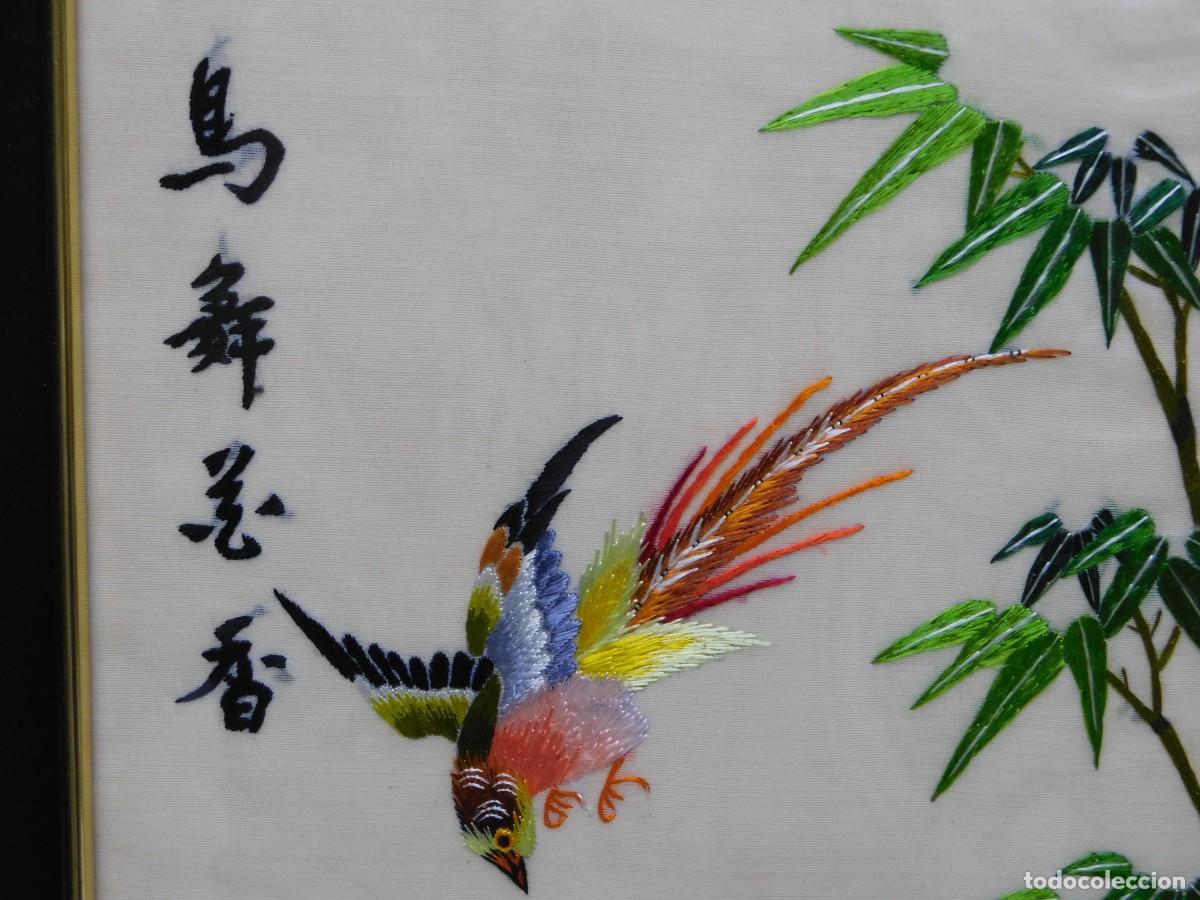 鳥舞花香
todocoleccion